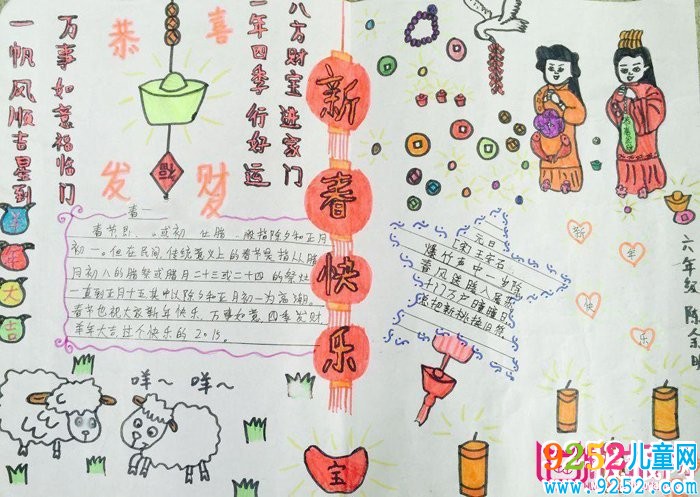 一帆风顺吉星到
万事如意福临门
恭喜
发财
一年四季行好运
八方财宝进家门
新春快乐
羊年大吉
春
春节是
或初一
般指除夕和正月
初一。但在民间,传统意义上的春节是指从腊
月初八的腊祭或腊月二十三或二十四的祭灶
一直到正月十五其中以除夕和正月初一为高潮。
春节也祝大家新年快乐、万事如意、四季发财
羊年大吉,过个快乐的2015。
元日
[宋]王安石
爆竹声中一岁除
春风送暖入屠苏
千门万户曈曈日
总把新桃换旧符。
新年快乐
六年级 陈
咩~ 咩~
宝
9252儿童网
www.9252.com